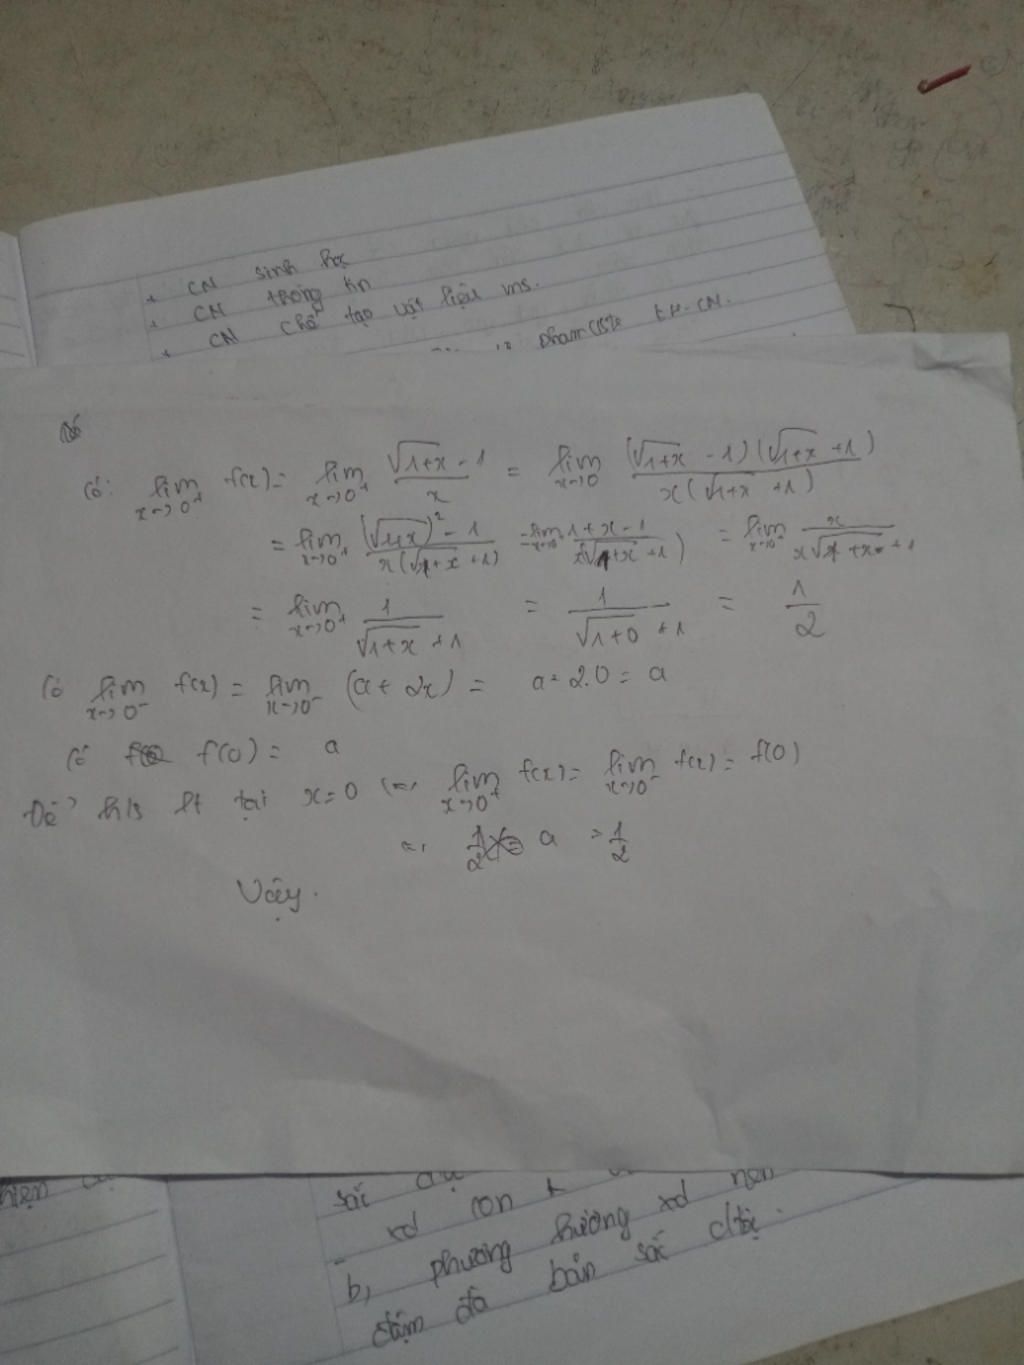 + CN sinh học
+ CN thông tin
+ CN chế tạo vật liệu ms.
phẩm t½ CN.
Có: lim x→0⁺ f(x) = lim x→0⁺ (√(1+x) - 1)/x = lim x→0 ((√(1+x) - 1)(√(1+x) + 1))/(x(√(1+x) + 1))
= lim x→0⁺ ((√(1+x))² - 1)/(x(√(1+x) + 1)) = lim x→0⁺ (1+x-1)/(x(√(1+x) + 1)) = lim x→0⁺ x/(x√(1+x) + 1)
= lim x→0⁺ 1/(√(1+x) + 1) = 1/(√(1+0) + 1) = 1/2
Có lim x→0⁻ f(x) = lim x→0⁻ (a + 2x) = a + 2.0 = a
Có f(0) = a
Để h/s lt tại x=0 <=> lim x→0⁺ f(x) = lim x→0⁻ f(x) = f(0)
<=> a = 1/2
Vậy.
sắc
xd con
b, phương hướng xd nền
đậm đà bản sắc dtộc.